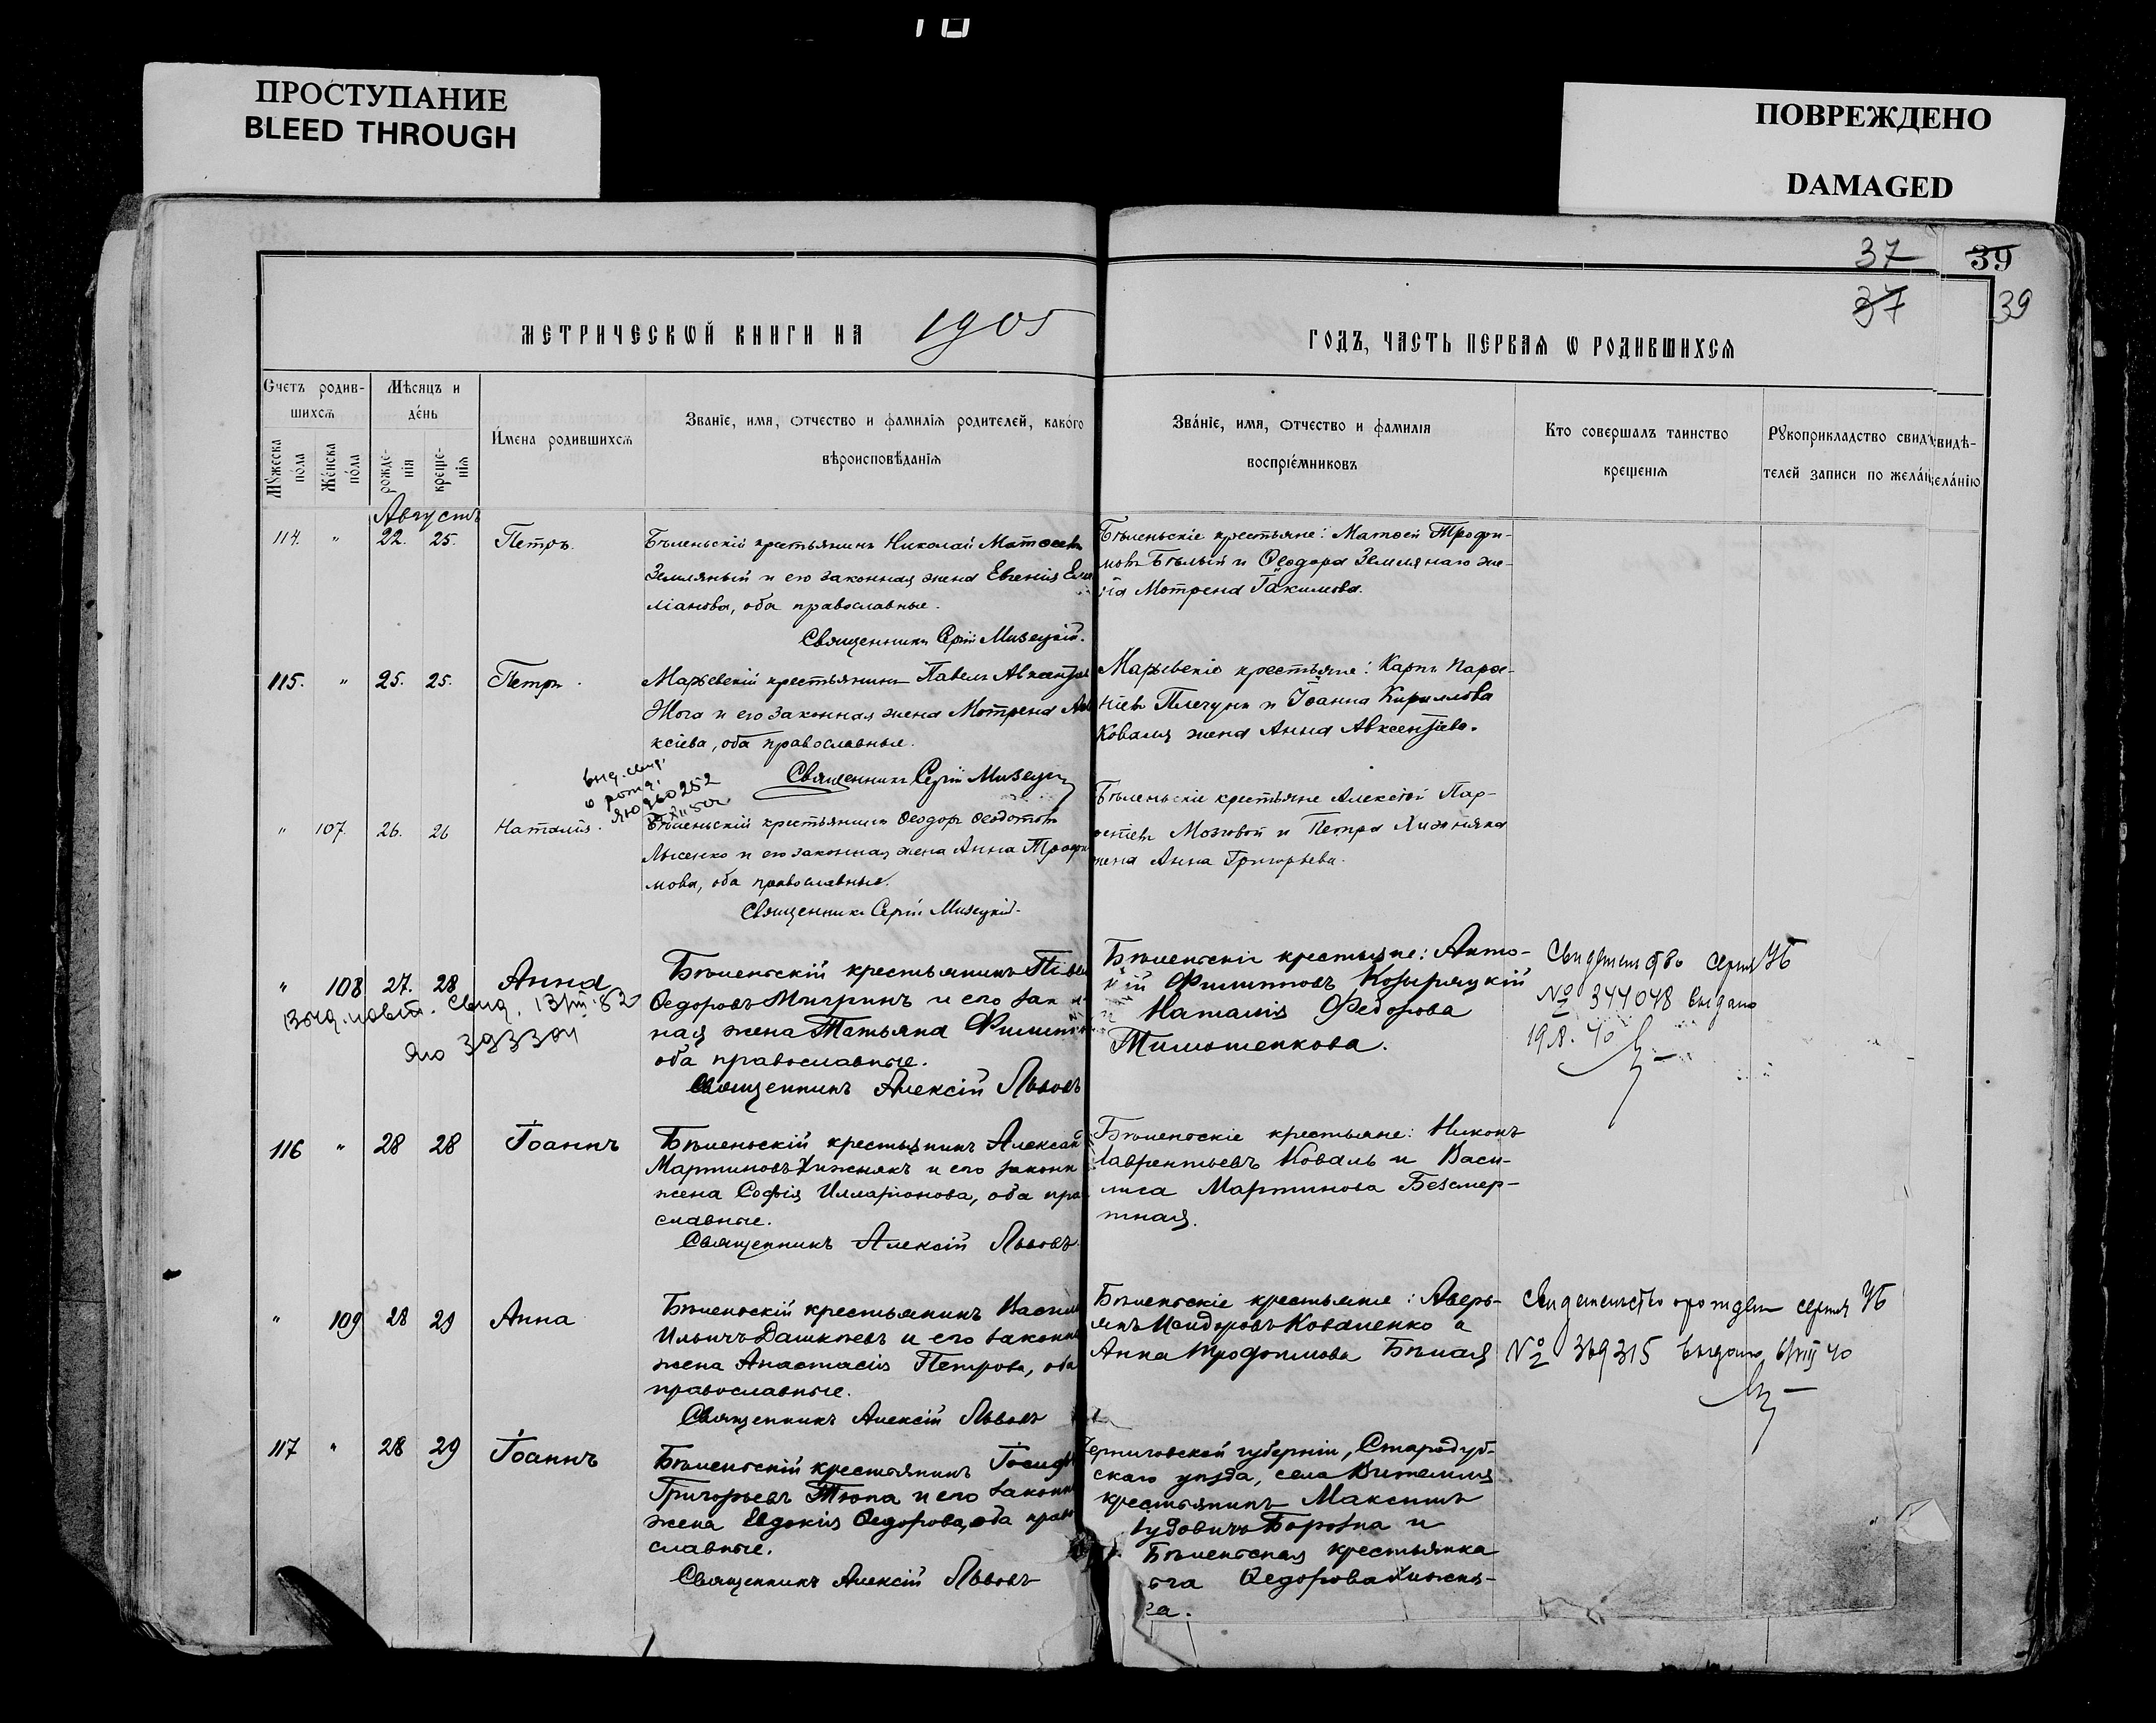 ПРОСТУПАНИЕ
BLEED THROUGH
ПОВРЕЖДЕНО
DAMAGED
37
39
37
39
МЕТРИЧЕСКОЙ КНИГИ НА 1905
ГОДЪ, ЧАСТЬ ПЕРВАЯ О РОДИВШИХСЯ
Счетъ родившихся
Мѣсяцъ и день
Имена родившихся
Званіе, имя, отчество и фамилія родителей, какого
вѣроисповѣданія
Званіе, имя, отчество и фамилія
воспріемниковъ
Кто совершалъ таинство
крещенія
Рукоприкладство свидѣ-
телей записи по желанію
Мужеска пола
Женска пола
рожде-нія
креще-нія
Августъ
114. " 22. 25. Петръ.
Бѣленьскій крестьянинъ Николай Матѳеевъ
Земляный и его законная жена Евгенія
ліанова, оба православные.
Священникъ Сергій Мизецкій.
Бѣленьскіе крестьяне: Матѳей Трофи-
мовъ Бѣлый и Ѳеодора Земляного же-
на Мотрена Іакимова.
115. " 25. 25. Петръ
Марьевскій крестьянинъ Павелъ
Жога и его законная жена Мотрена
ксіева, оба православные.
Священникъ Сергій
Марьевскіе крестьяне: Карпъ Парѳе-
ніевъ Плечунъ и Іоанна Кириллова
Коваля жена Анна Авксентіева.
" 107 26. 26 Наталія.
Бѣленьскій крестьянинъ Ѳеодоръ Ѳеодотовъ
Лысенко и его законная жена Анна Трофи
мова, оба православные.
Священникъ Сергій Мизецкій.
Бѣленьскіе крестьяне Алексѣй Пар-
ѳеніевъ Мозговой и Петра Хижняка
жена Анна Григорьева.
" 108 27. 28 Анна
Выд. повт. свид.
ЯЮ 393304
Бѣленьскій крестьянинъ
Ѳедоровъ Мигринъ и его закон
ная жена Татьяна Филиппо
оба православные.
Священникъ Алексій Львовъ
Бѣленьскіе крестьяне: Анто-
ній Филипповъ Козыряцкій
и Наталія Федорова
Тимошенкова.
Свидетельство серия УБ
№ 344048 выдано
116 " 28 28 Іоаннъ
Бѣленьскій крестьянинъ Александ
Мартиновъ Хижнякъ и его законн
жена Софія Илларіонова, оба пра
славные.
Священникъ Алексій Львовъ.
Бѣленьскіе крестьяне: Никонъ
Лаврентьевъ Коваль и Васи-
лиса Мартинова Безсмер-
тная.
" 109 28 29 Анна
Бѣленьскій крестьянинъ Васил
Ильичъ Дашкѣевъ и его законн
жена Анастасія Петрова, оба
православные.
Священникъ Алексій Львовъ
Бѣленьскіе крестьяне: Аверь-
янъ Исидоровъ Коваленко и
Анна Трофимова Бѣлая
Свидетельство о рожден серия УБ
№ 369315 выдано
117 " 28 29 Іоаннъ
Бѣленьскій крестьянинъ
Григорьевъ Тюпа и его законн
жена Евдокія Ѳедорова, оба прав
славные.
Священникъ Алексій Львовъ
Черниговской губерніи, Стародуб-
скаго уѣзда, села
крестьянинъ Максимъ
и
Бѣленьская крестьянка
Ѳедорова Хижня-
ка.